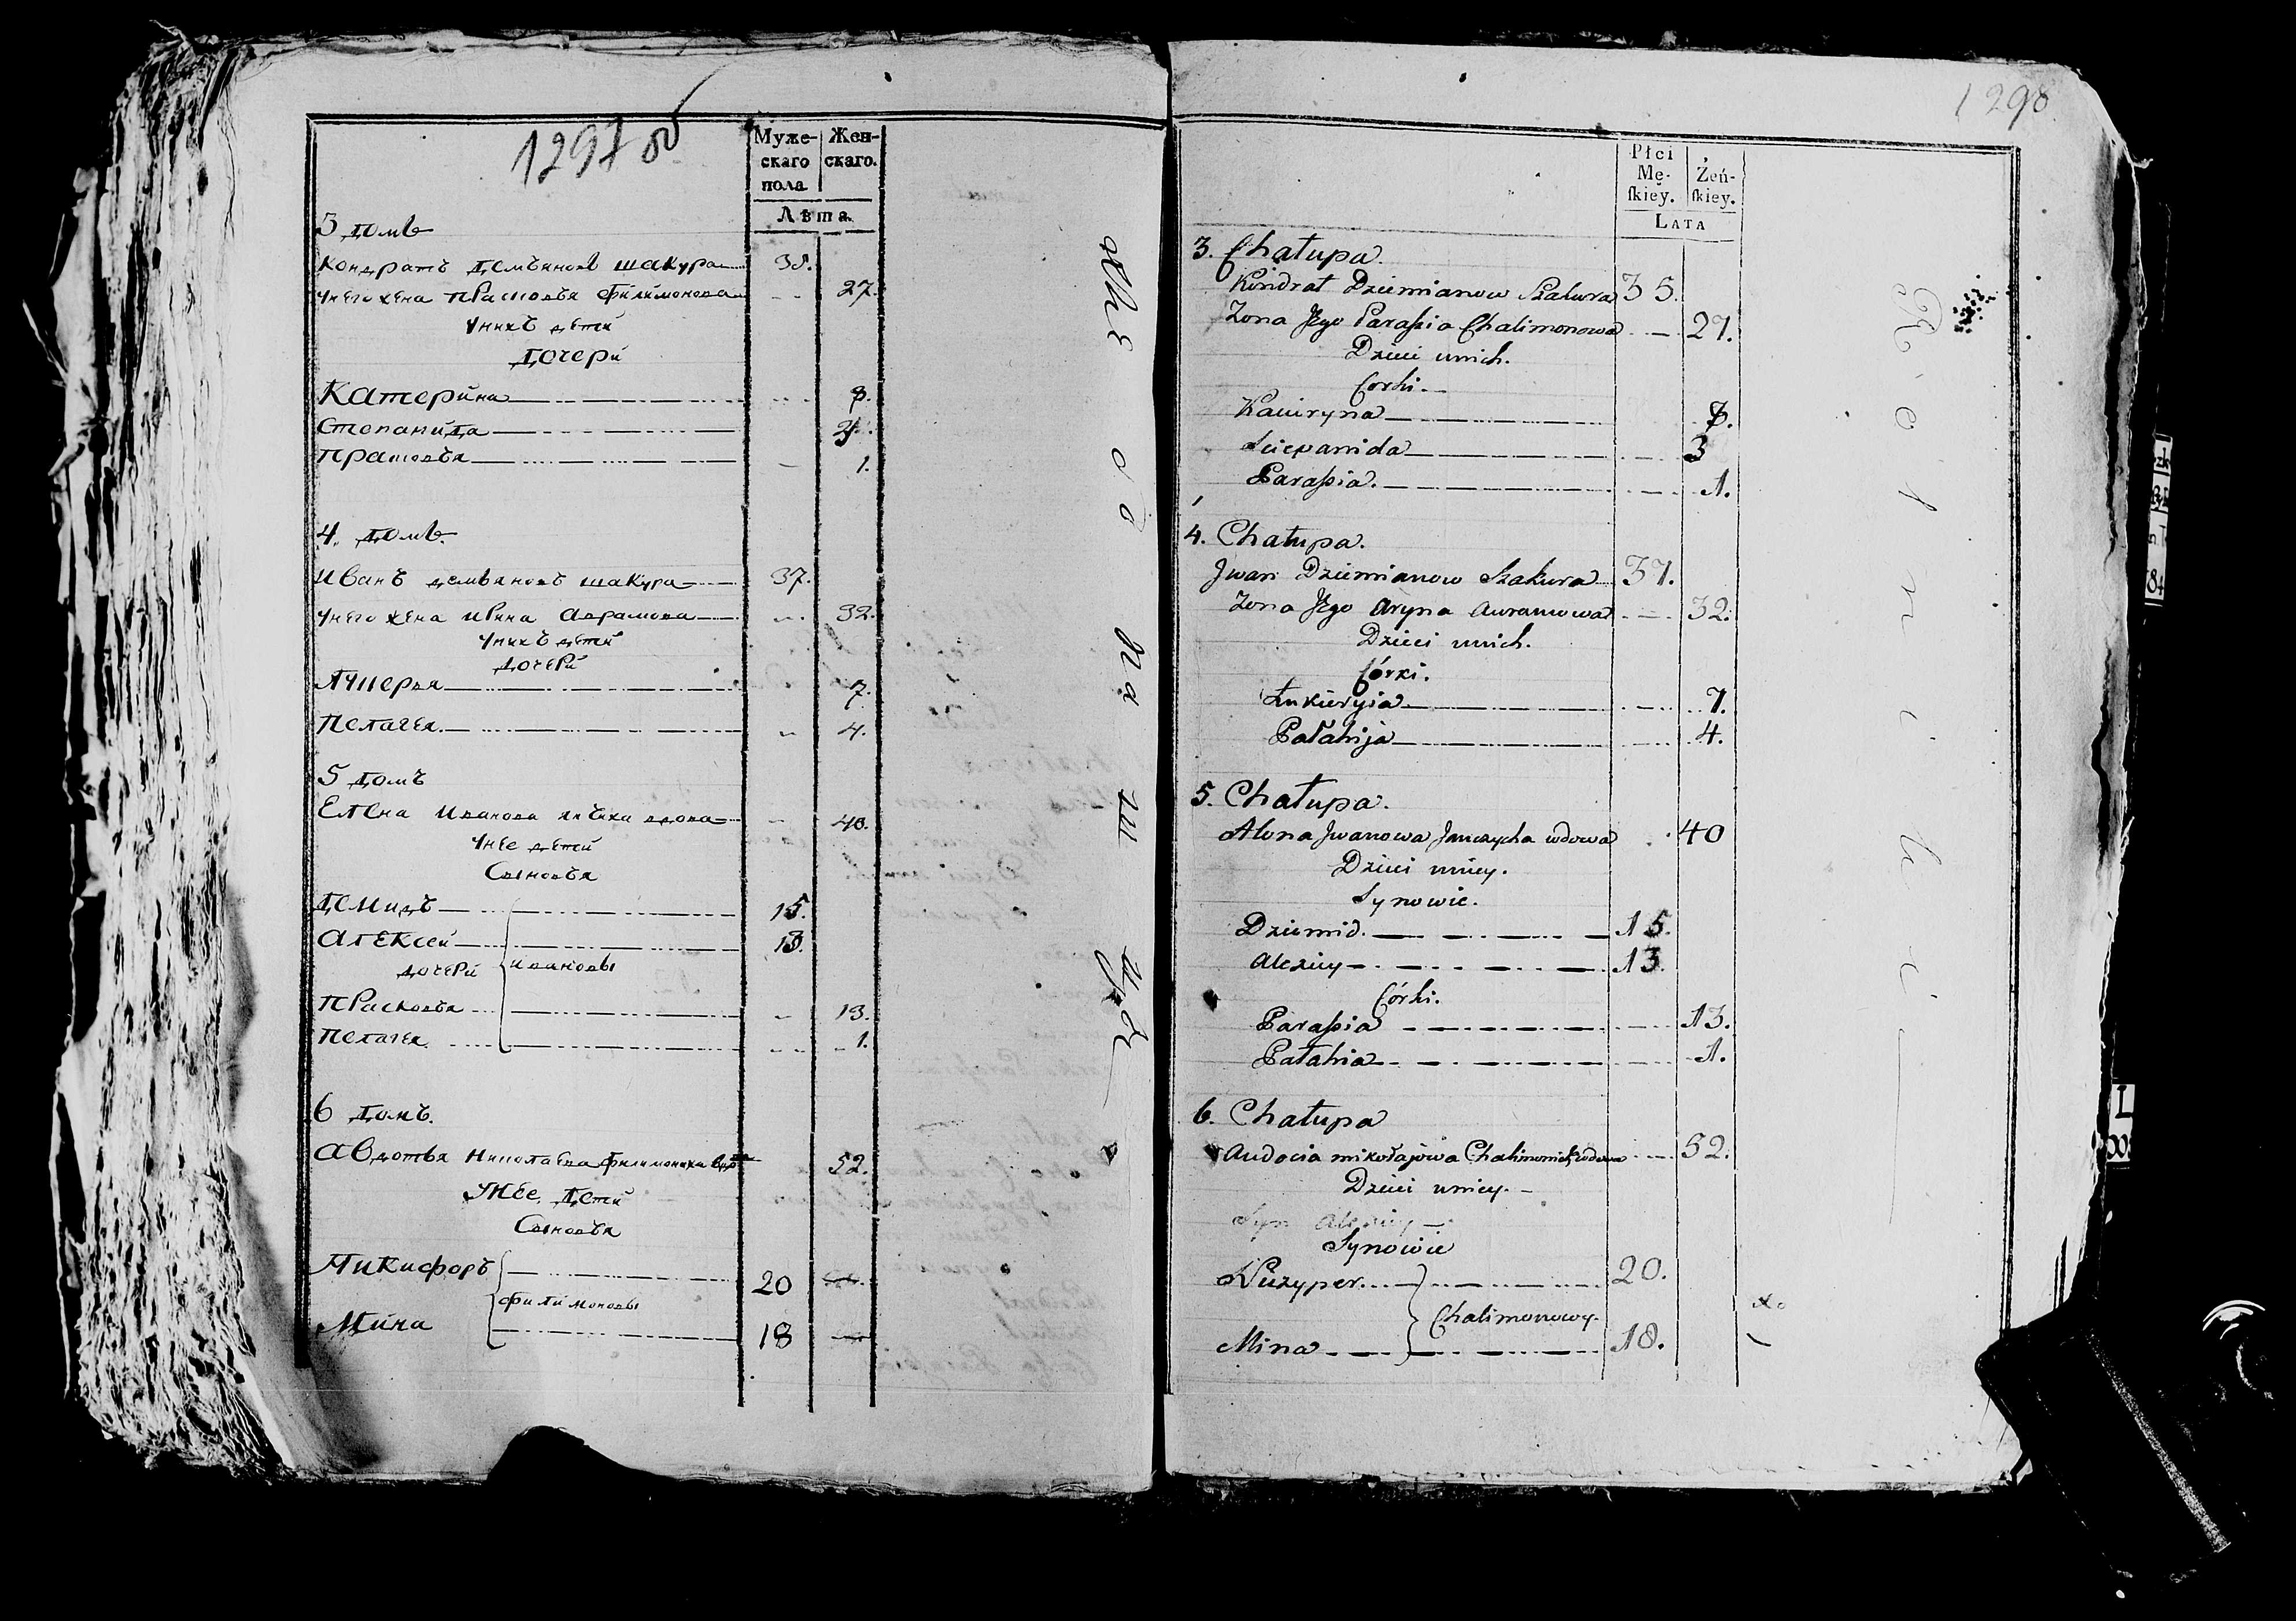 1297 об
Муже-
скаго
пола
Жен-
скаго.
Лѣта.
3 домъ
Кондратъ демьяновъ шакура 35.
У него жена прасковья филимонова 27.
У нихъ дети
дочери
Катерина
Степанида
прасковья 1.
4. домъ.
Иванъ демьяновъ шакура 37.
У него жена ирина аврамова 32.
У нихъ дети
дочери
лукерья 7.
пелагея. 4.
5 домъ
Елена Иванова вдова 40.
У нее дети
Сыновья
демидъ 15.
алексей 13.
дочери ивановы
прасковья 13.
пелагея. 1.
6 домъ.
авдотья николаева филимониха 52.
У нее дети
Сыновья
Никифоръ 20
филимоновы
Мина 18
1298.
Płci
Mę-
ſkiey.
Żeń-
ſkiey.
LATA
3. Chałupa.
Kondrat Dziemianow Szakura 35.
Zona Jego Paraſzia Chalimonowa 27.
Dzieci unich.
Corki.
Kaciryna 7.
Sciepanida 3
Paraſzia. 1.
4. Chałupa.
Jwan Dziemianow Szakura 37.
Zona Jego Aryna Auramowa 32.
Dzieci unich.
Córki.
Łukieryia 7.
Pałahija 4.
5. Chałupa.
Alona Jwanowa Janczycha wdowa 40
Dzieci uniey.
Synowie.
Dziemid. 15.
Alexiey 13.
Córki.
Paraſzia 13.
Pałahia 1.
6. Chałupa
Audocia mikołajowa Chalimonicha wdowa 52.
Dzieci uniey.
Syn Alexiey
Synowie
Niczyper 20.
Chalimonowy.
Mina 18.